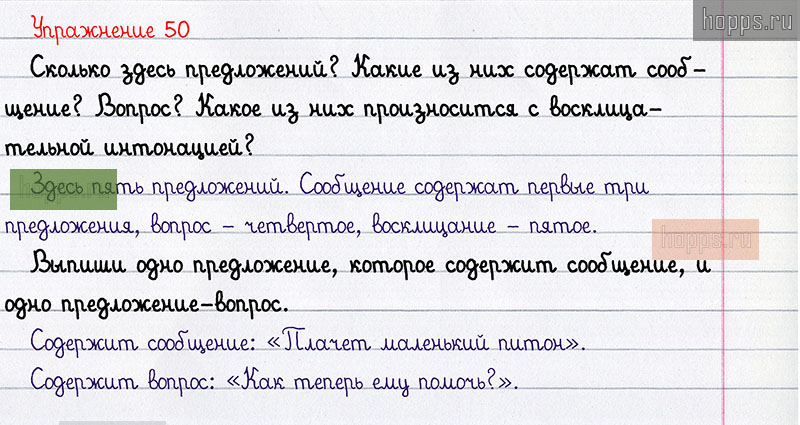 hopps.ru
Упражнение 50
Сколько здесь предложений? Какие из них содержат сооб-
щение? Вопрос? Какое из них произносится с восклица-
тельной интонацией?
Здесь пять предложений. Сообщение содержат первые три
предложения, вопрос - четвертое, восклицание - пятое.
hopps.ru
Выпиши одно предложение, которое содержит сообщение, и
одно предложение-вопрос.
Содержит сообщение: «Плачет маленький питон».
Содержит вопрос: «Как теперь ему помочь?».